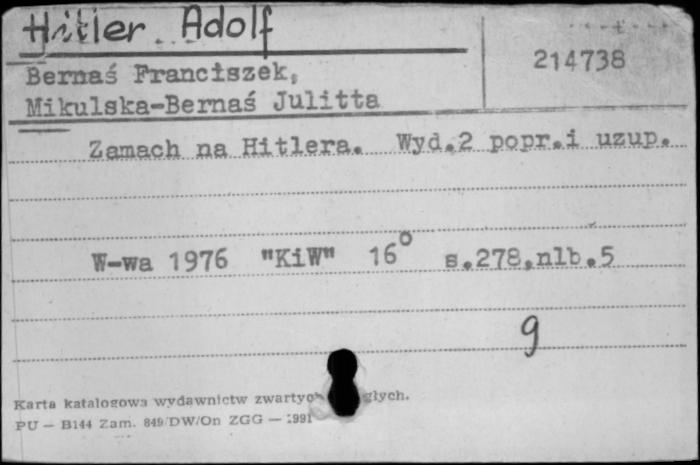 Hitler Adolf
Bernaś Franciszek,
214738
Mikulska-Bernaś Julitta
Zamach na Hitlera. Wyd.2 popr.i uzup.
W-wa 1976 "KiW" 16° s.278,nlb.5
g
Karta katalogowa wydawnictw zwartych głych.
PU — B144 Zam. 849/DW/On ZGG — 1991